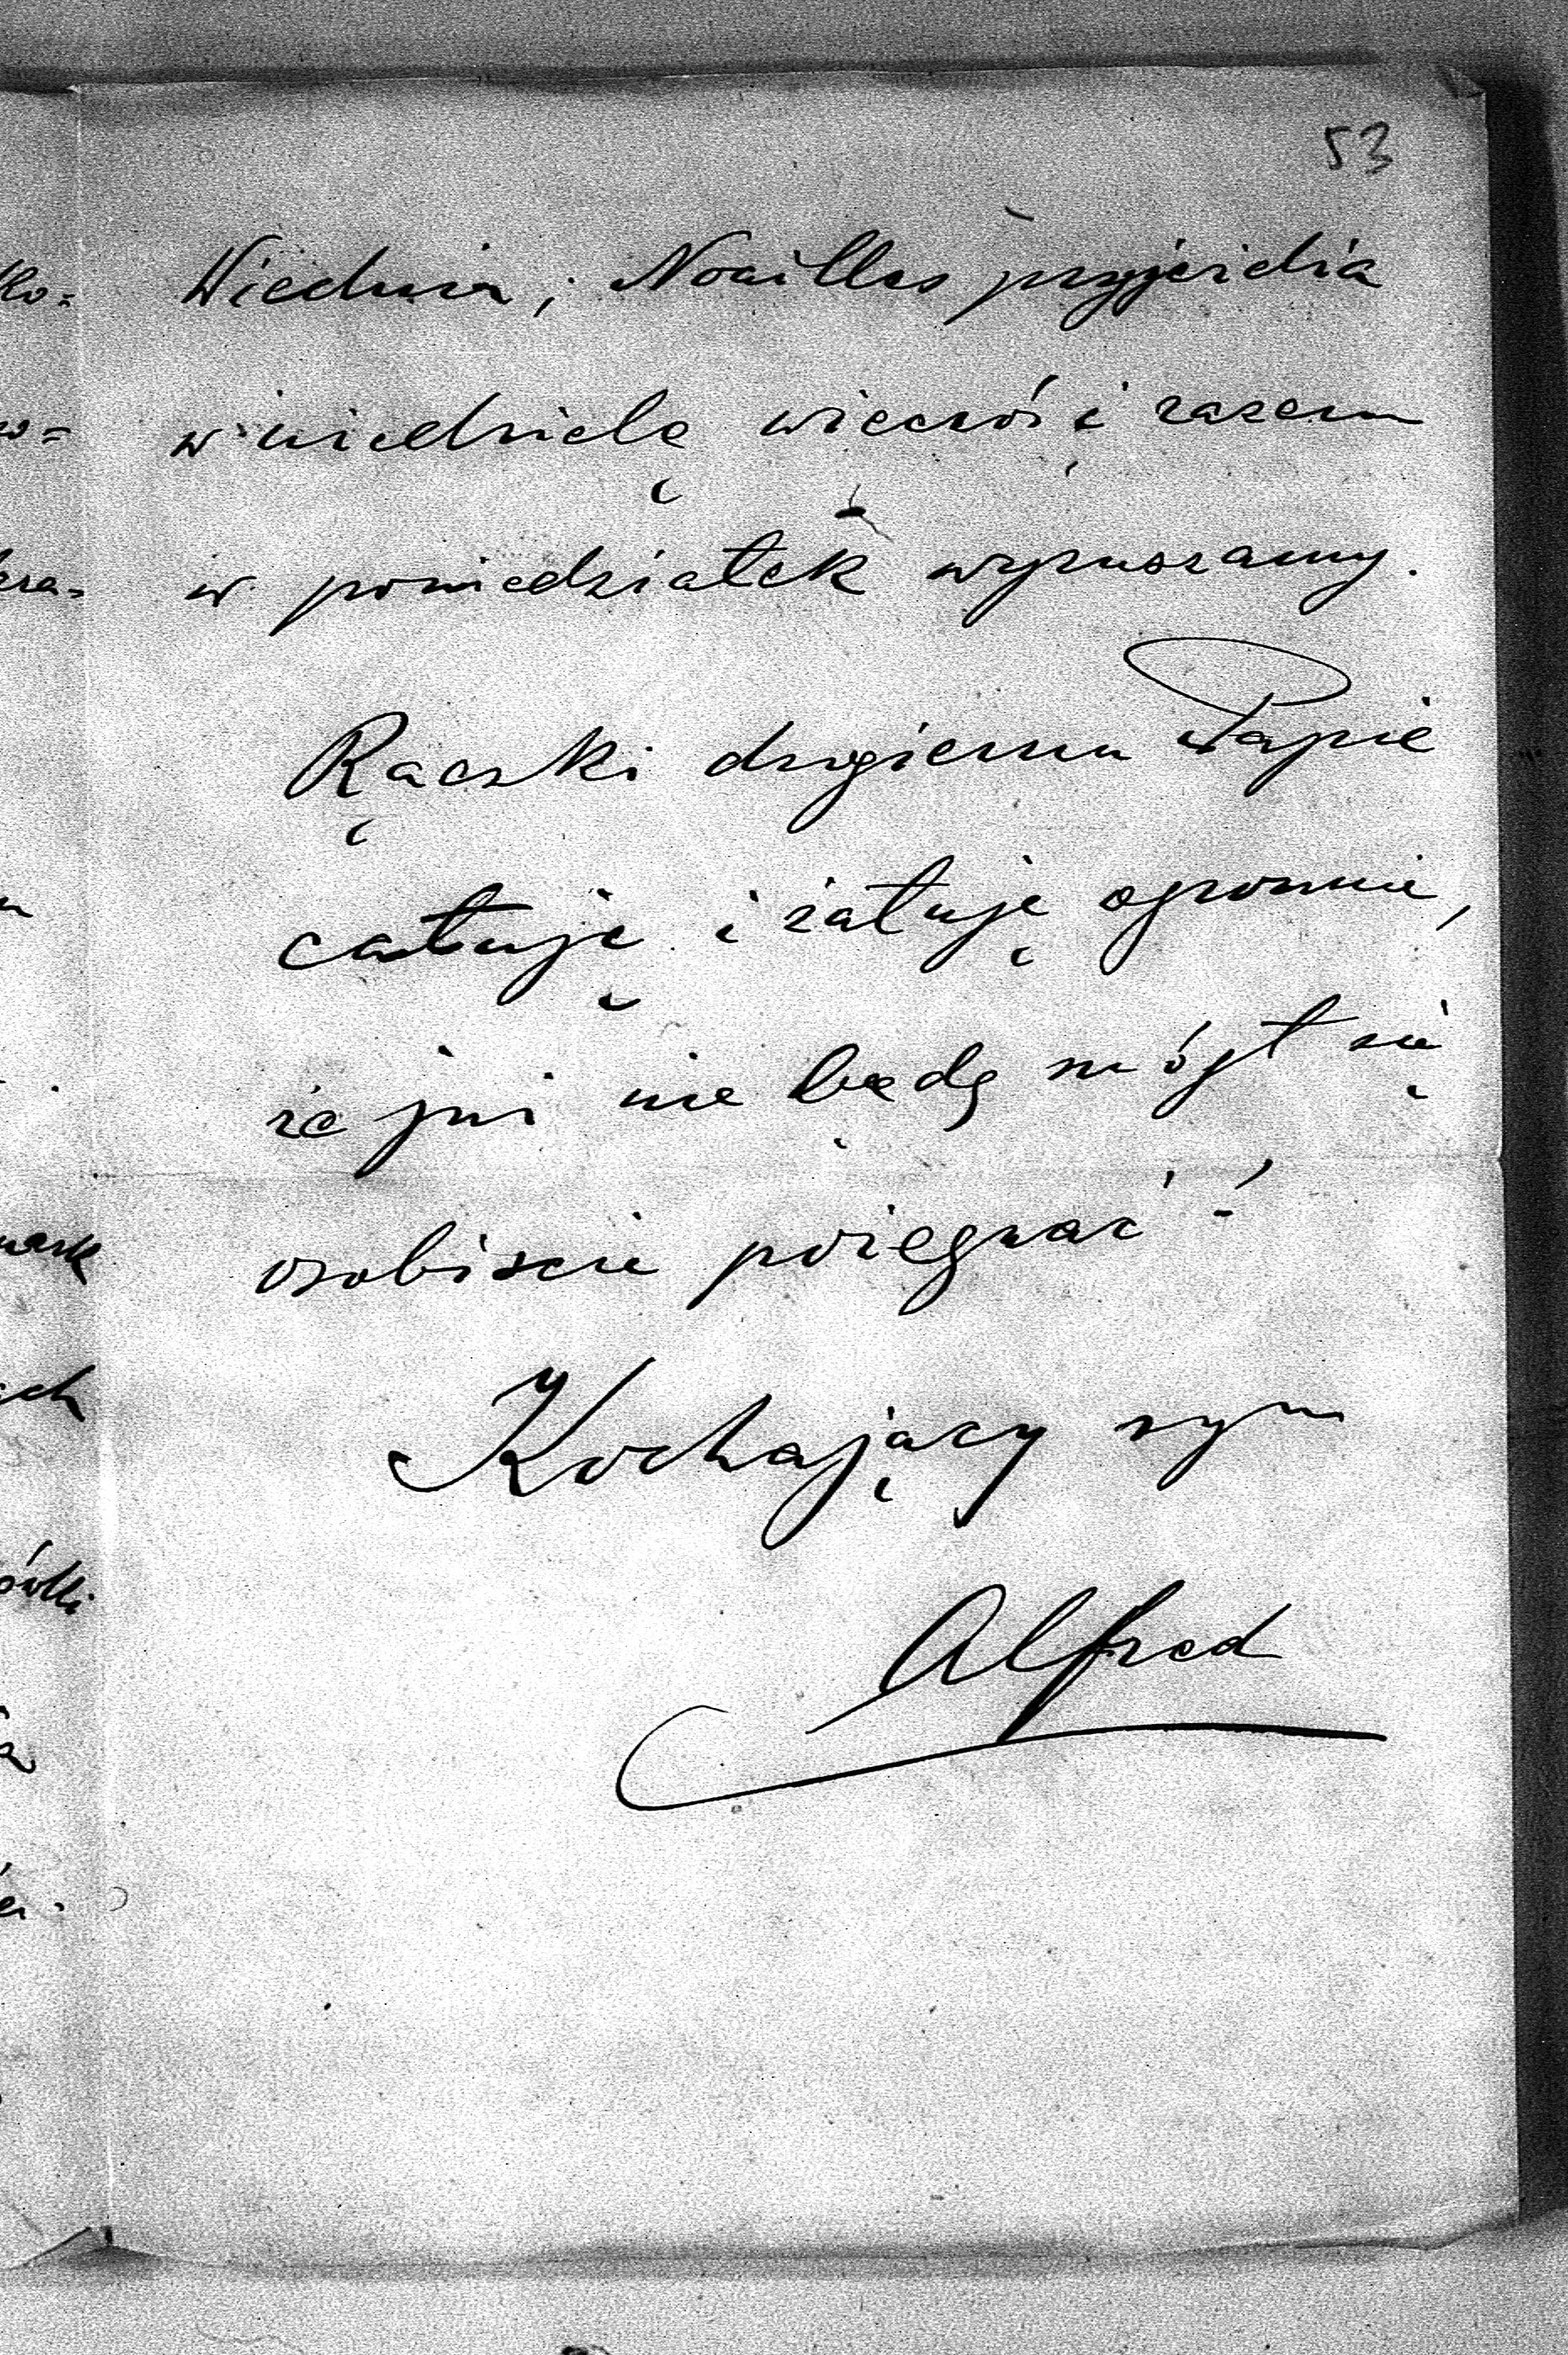 53
Wiednia; Noailles przyjeżdża
w niedzielę wieczór i razem
w poniedziałek wyruszamy.
Rączki drogiemu Papie
całuję i żałuję ogromnie,
że już nie będę mógł się
osobiście pożegnać!
Kochający syn
Alfred